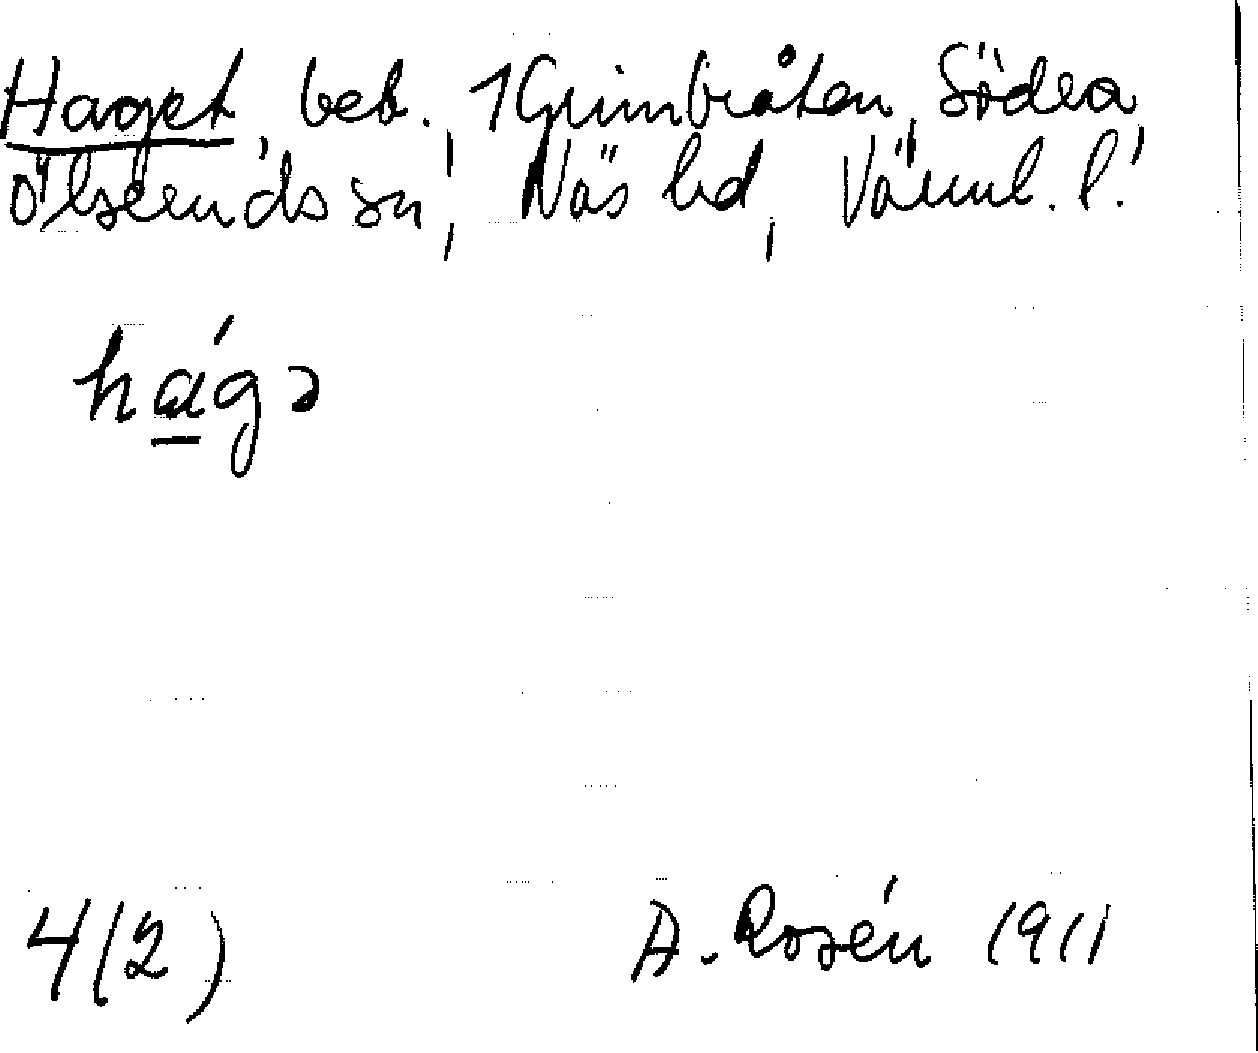 Haget, beb., 1 Grimbråten, Södra
Ölseruds sn, Näs hd, Värml. l.
hág
4(2)
A. Rosén 1911